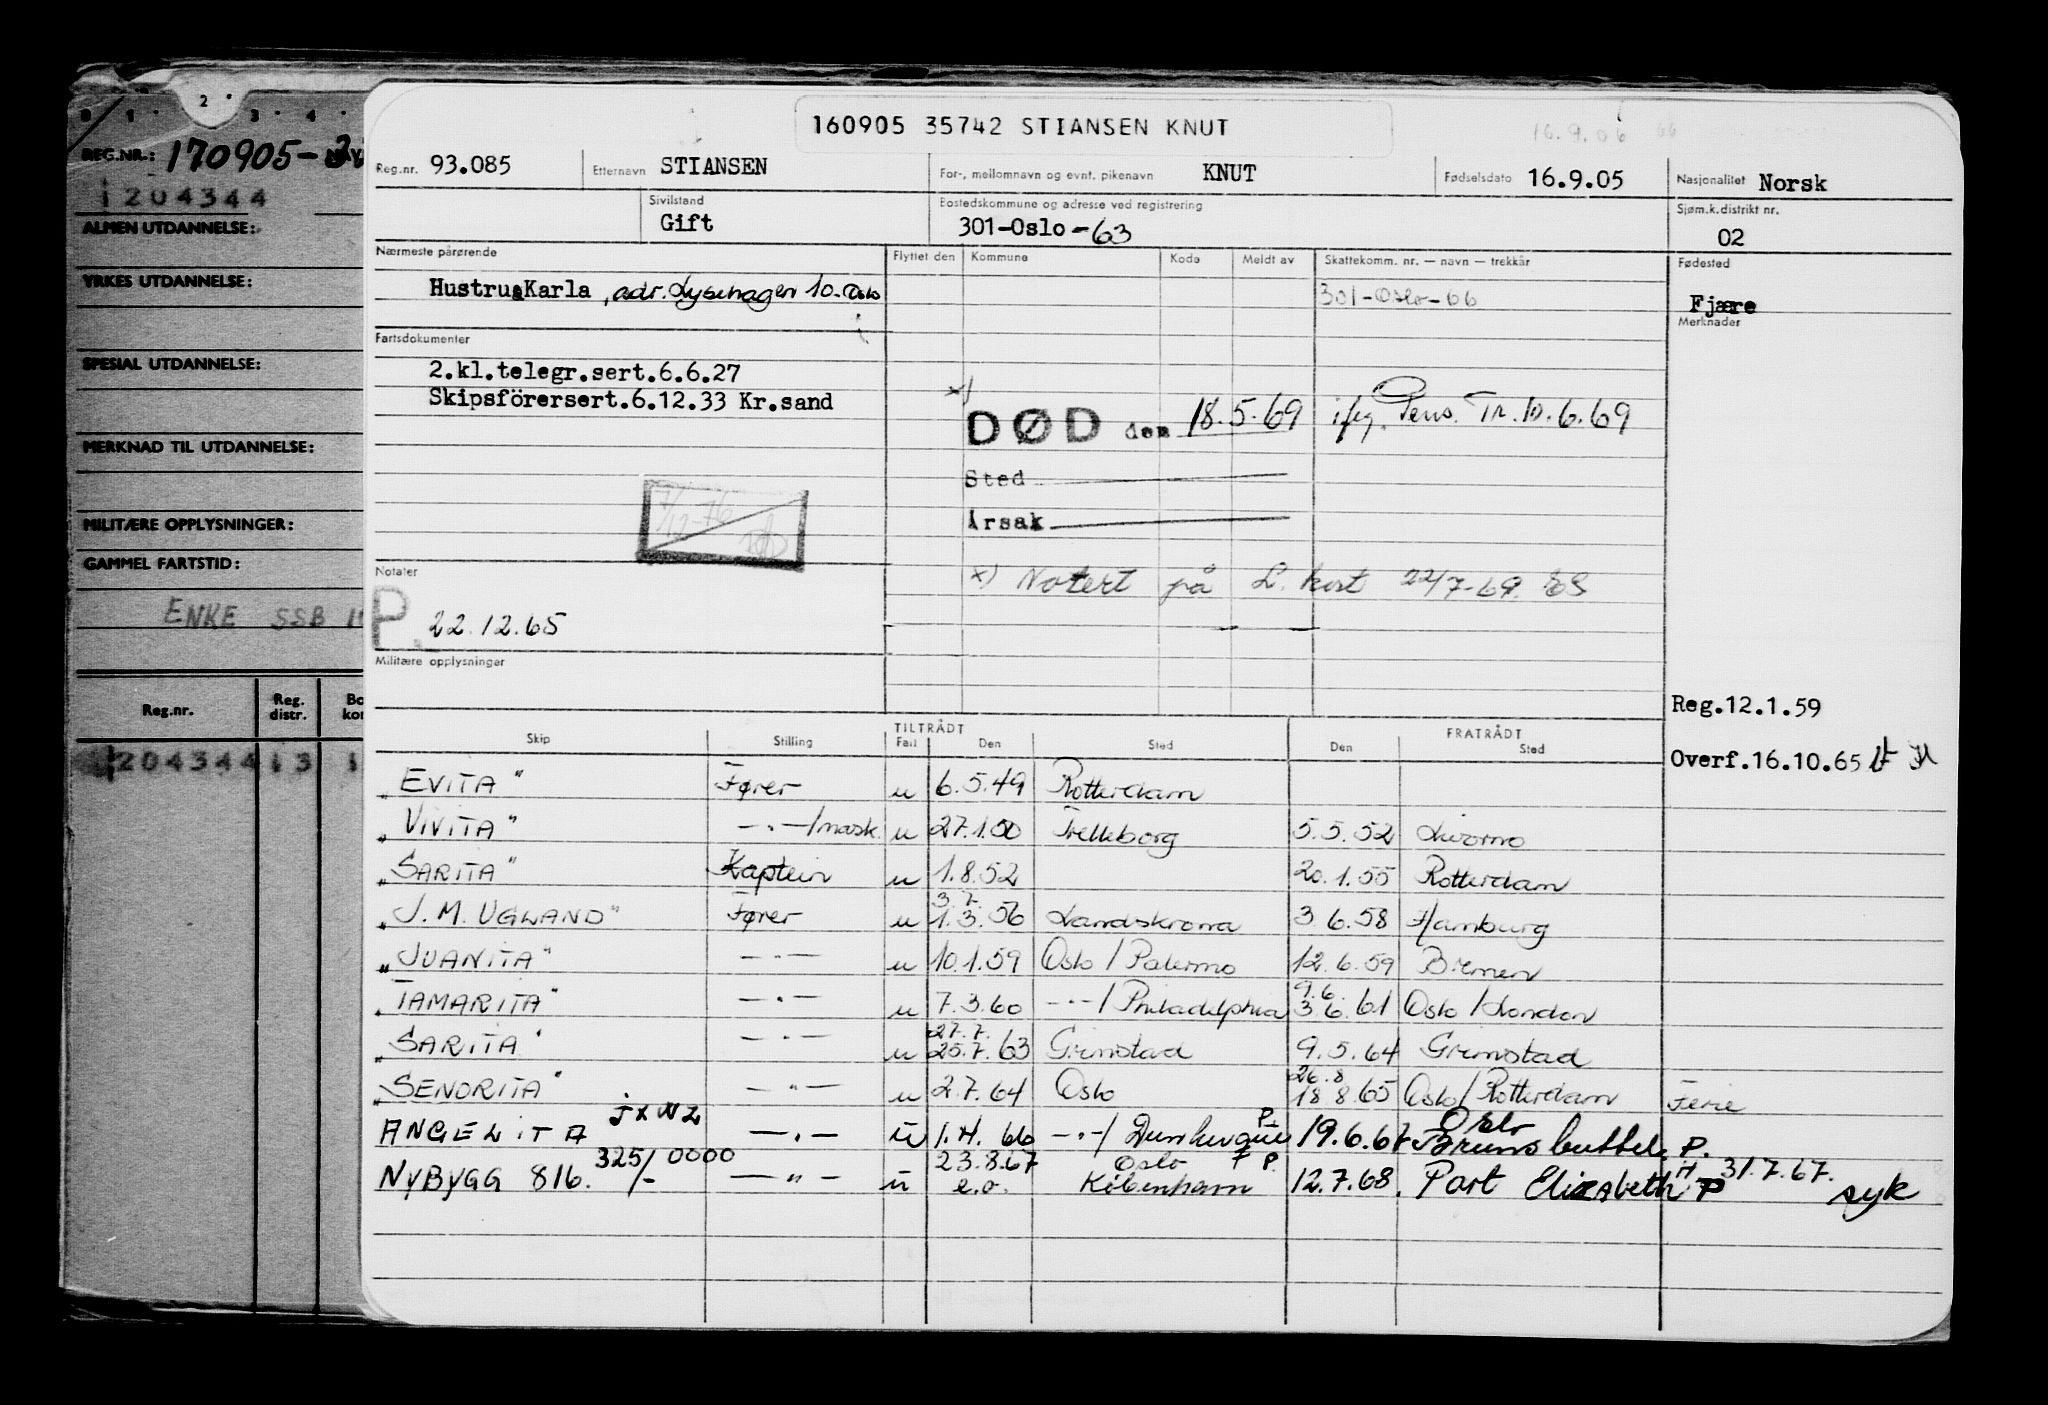 2
0 1 · 3 · 4 ·
REG.NR.: 170905-
1204344
ALMEN UTDANNELSE:
YRKES UTDANNELSE:
SPESIAL UTDANNELSE:
MERKNAD TIL UTDANNELSE:
MILITÆRE OPPLYSNINGER:
GAMMEL FARTSTID:
ENKE SSB
Reg.nr. Reg. distr. Bo kor
1204344 13 1
160905 35742 STIANSEN KNUT
16.9.06 66
Reg.nr. 93.085 Etternavn STIANSEN For-, mellomnavn og evnt. pikenavn KNUT Fødselsdato 16.9.05 Nasjonalitet Norsk
Sivilstand Gift Bostedskommune og adresse ved registrering 301-Oslo-63 Sjøm.k.distrikt nr. 02
Nærmeste pårørende Flyttet den Kommune Kode Meldt av Skattekomm. nr. — navn — trekkår Fødested
Hustru Karla, adr. Lysehagen 10-Oslo 301-Oslo-66 Fjære
Merknader
Fartsdokumenter
2.kl.telegr.sert.6.6.27
Skipsförersert.6.12.33 Kr.sand
x) DØD den 18.5.69 ifg. Pens. Tr. 10.6.69
Sted
Årsak
7/12-76
x) Notert på L. kort 22/7-69.
Notater
P. 22.12.65
Militære opplysninger
Reg.12.1.59
Overf.16.10.65
TILTRÅDT FRATRÅDT
Skip Stilling Fart Den Sted Den Sted
„EVITA" Fører u 6.5.49 Rotterdam
„VIVITA" —„—/mask. u 27.1.50 Trelleborg 5.5.52 Livorno
„SARITA" Kaptein u 1.8.52 20.1.55 Rotterdam
3.7.
„J.M. UGLAND" Fører u 1.3.56 Landskrona 3.6.58 Hamburg
„JUANITA" —„— u 10.1.59 Oslo/Palermo 12.6.59 Bremen
9.6.
„TAMARITA" —„— u 7.3.60 —„—/Philadelphia 3.6.61 Oslo/London
27.7.
„SARITA" —„— u 25.7.63 Grimstad 9.5.64 Grimstad
26.8
„SENORITA" —„— u 2.7.64 Oslo 18.8.65 Oslo/Rotterdam Ferie
JXWZ P. Oslo
ANGELITA —„— u 1.4.66 —„—/Dunkerque 19.6.67 Brunsbuttel. P.
325/- 0000 23.8.67 Oslo P. H 31.7.67.
NYBYGG 816. —„— u e.o. København 12.7.68. Port Elizabeth P syk